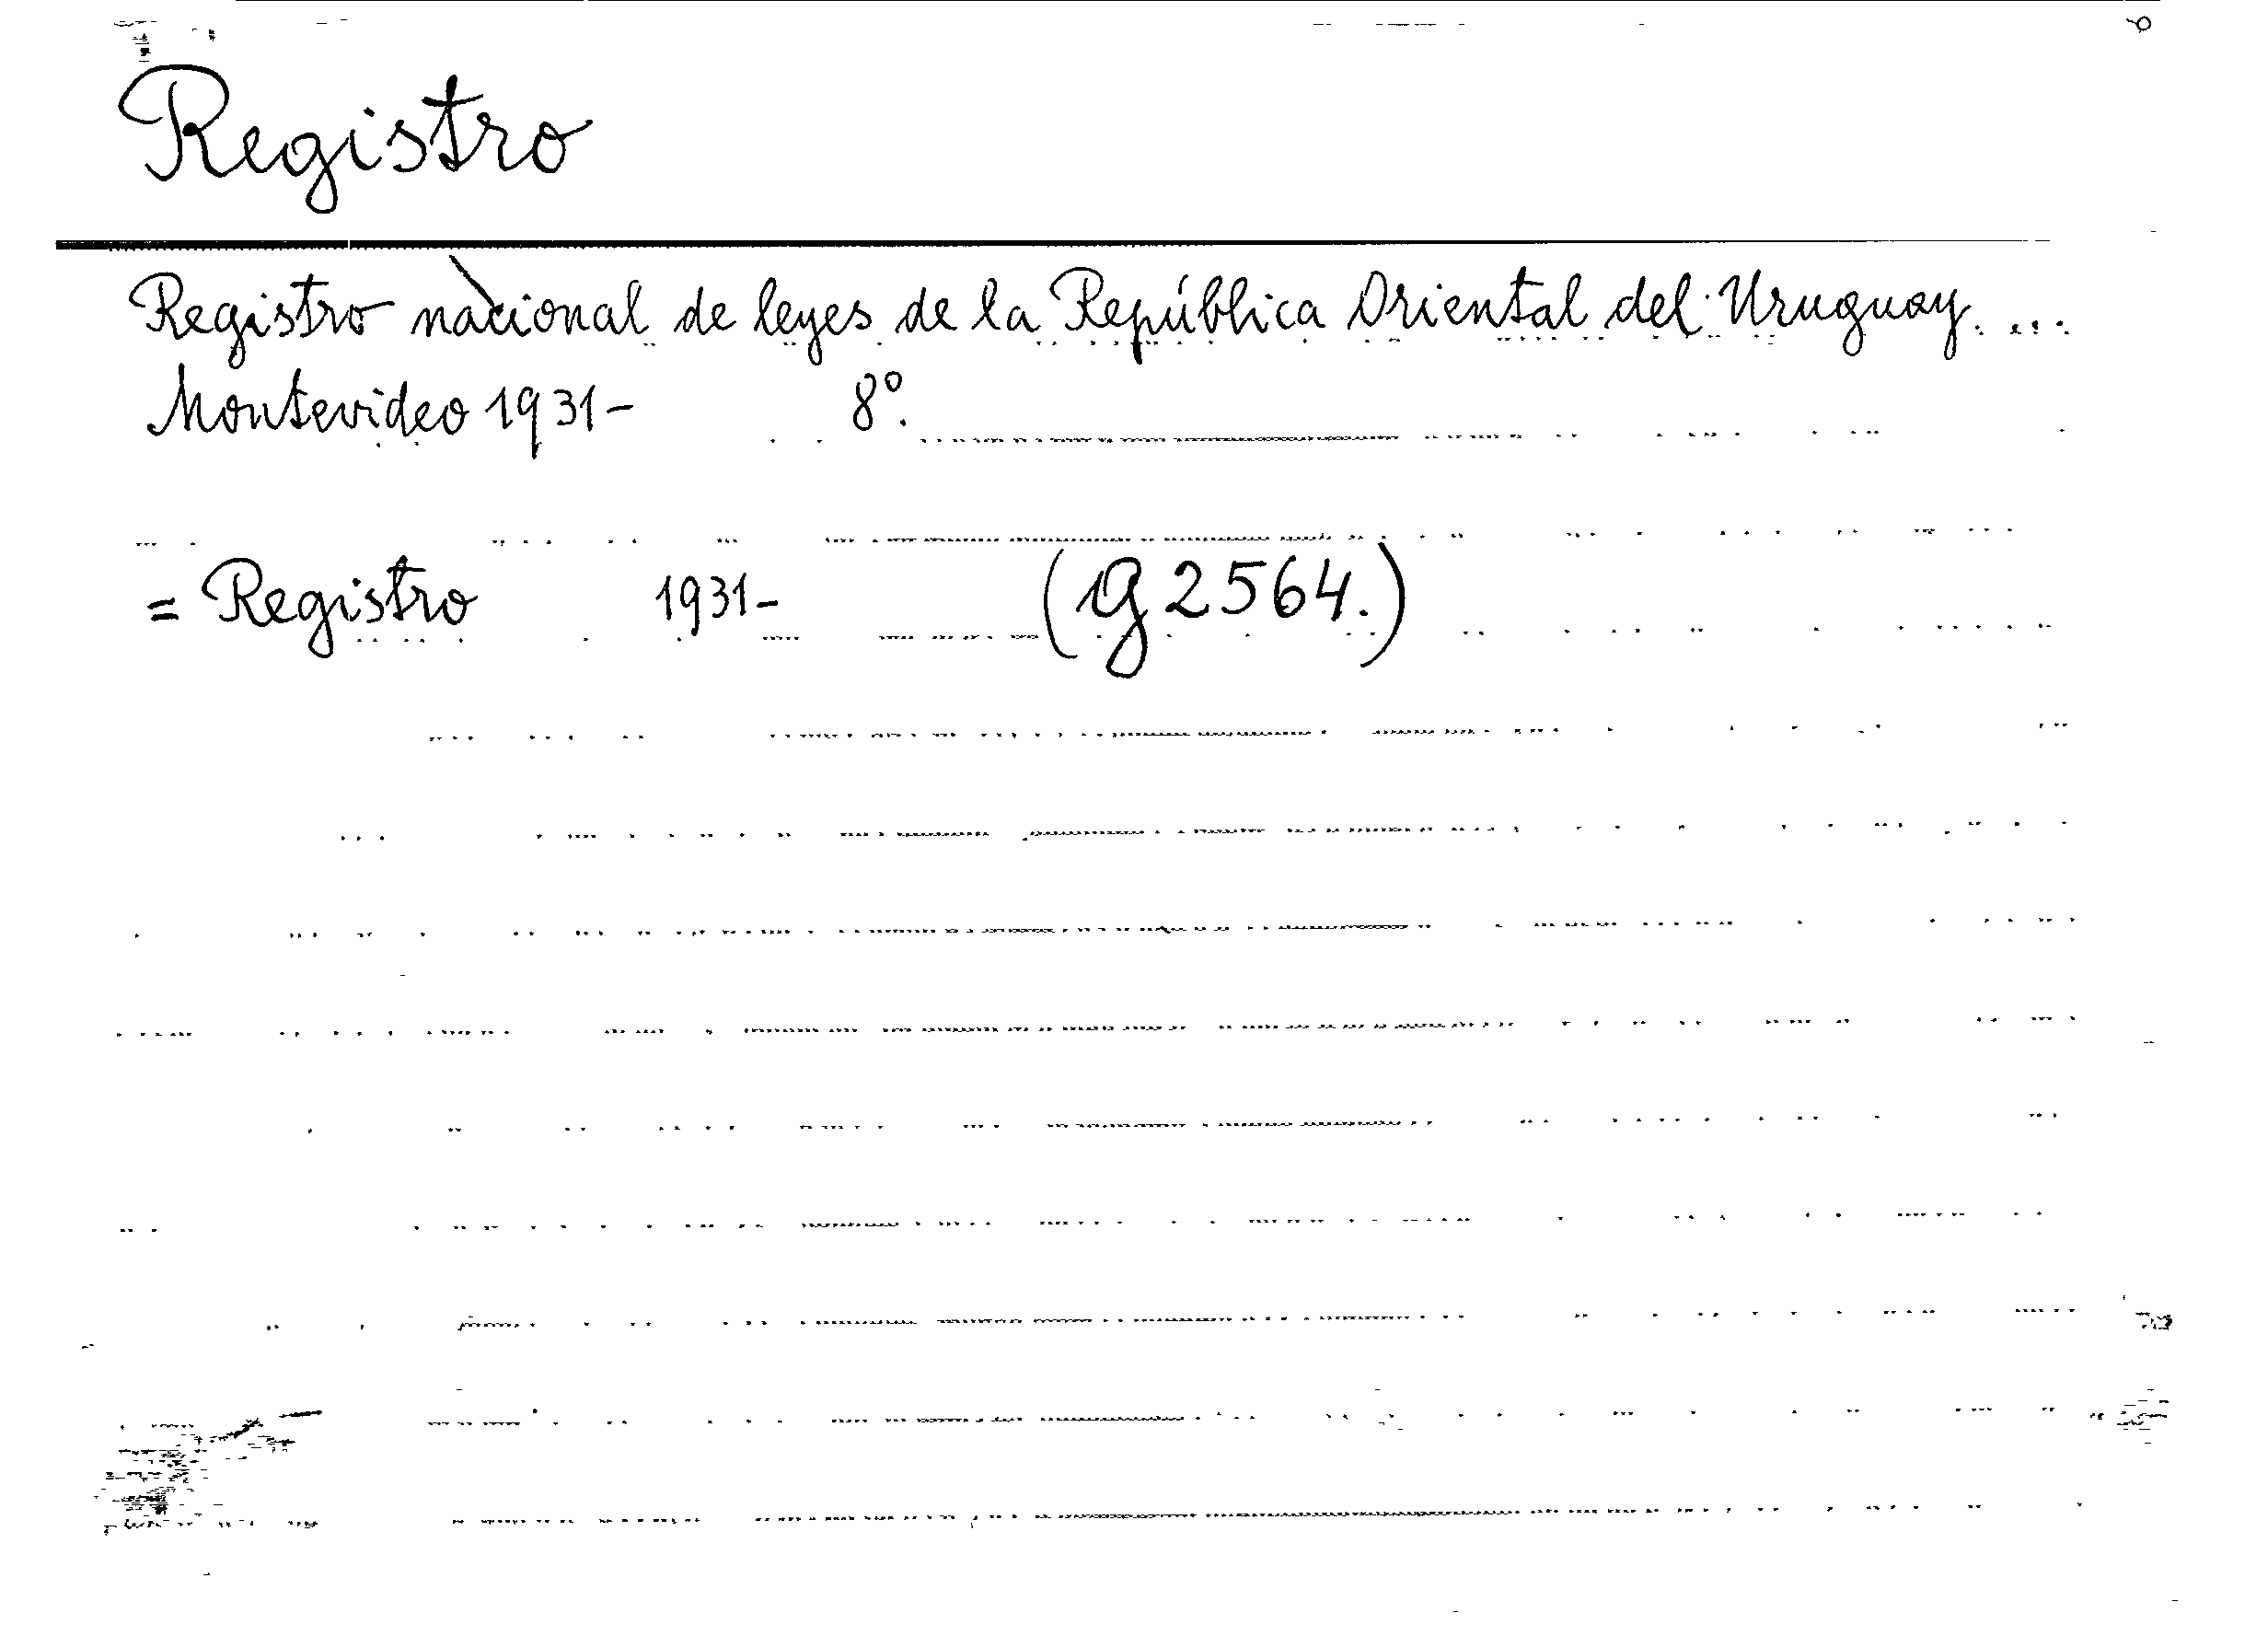 Registro
Registro nacional de leyes de la República Oriental del Uruguay. ...
Montevideo 1931- 8º.
= Registro 1931- (G 2564.)